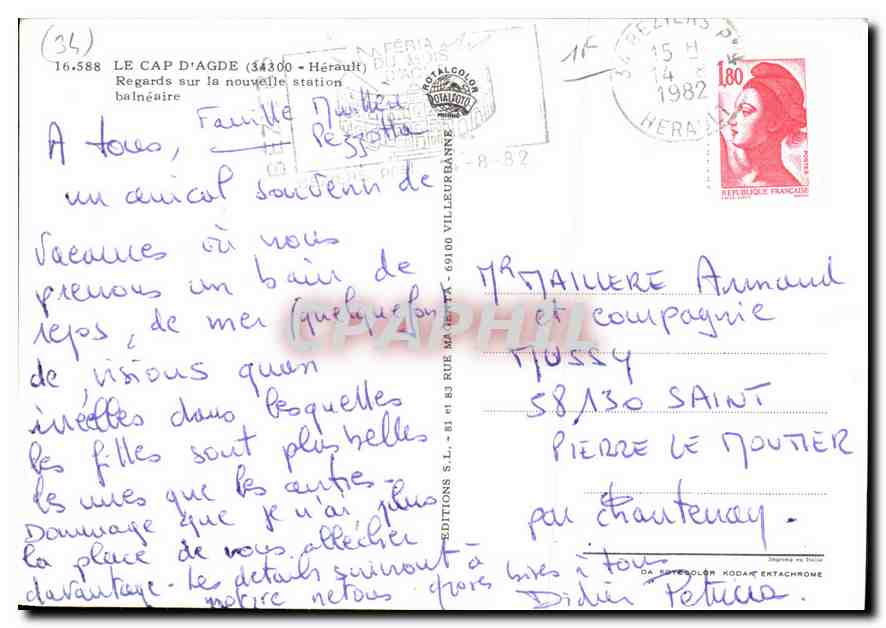 (34)
16.588 LE CAP D'AGDE (34300 - Hérault)
Regards sur la nouvelle station
balnéaire
Famille Maillere
A tous, Pezzotta
un amical souvenir de
vacances où nous
prenons un bain de
repos, de mer (quelquefois)
de visions quasi
irréelles dans lesquelles
les filles sont plus belles
les unes que les autres -
Dommage que je n'ai plus
la place de vous allécher
davantage - Les détails suivront à
notre retour grosses bises à tous
Didier Patricia.
LA FÉRIA
ROTALCOLOR
ROTALFOTO
MILANO
-8-82
EDITIONS S.L. - 81 et 83 RUE MAGENTA - 69100 VILLEURBANNE
1F
34 BEZIERS P
15 H
14 - 8
1982
HERAULT
1,80
POSTES
REPUBLIQUE FRANÇAISE
Mr MAILLERE Armand
et compagnie
MUSSY
58130 SAINT
PIERRE LE MOUTIER
par Chantenay.
Imprimé en Italie
DA FOTOCOLOR KODAK EKTACHROME
CPAPHIL